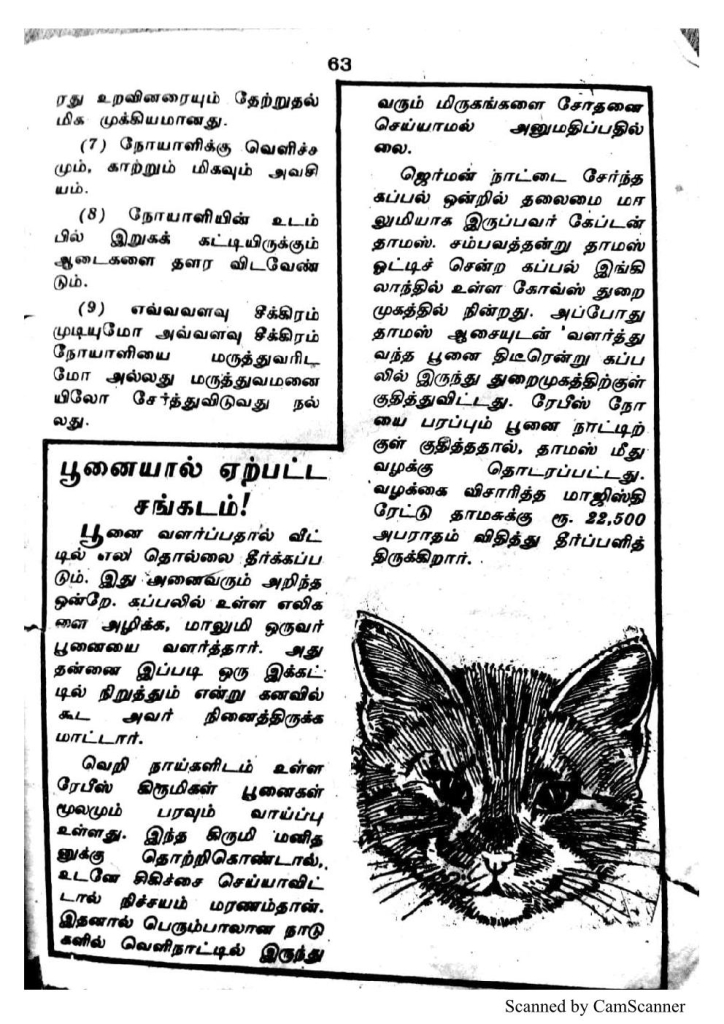 63
ரது உறவினரையும் தேற்றுதல்
மிக முக்கியமானது.
(7) நோயாளிக்கு வெளிச்ச
மும், காற்றும் மிகவும் அவசி
யம்.
(8) நோயாளியின் உடம்
பில் இறுகக் கட்டியிருக்கும்
ஆடைகளை தளர விடவேண்
டும்.
(9) எவ்வளவு சீக்கிரம்
முடியுமோ அவ்வளவு சீக்கிரம்
நோயாளியை மருத்துவரிட
மோ அல்லது மருத்துவமனை
யிலோ சேர்த்துவிடுவது நல்
லது.
பூனையால் ஏற்பட்ட
சங்கடம்!
பூனை வளர்ப்பதால் வீட்
டில் தொல்லை தீர்க்கப்ப
டும். இது அனைவரும் அறிந்த
ஒன்றே. கப்பலில் உள்ள எலிக
ளை அழிக்க, மாலுமி ஒருவர்
பூனையை வளர்த்தார். அது
தன்னை இப்படி ஒரு இக்கட்
டில் நிறுத்தும் என்று கனவில்
கூட அவர் நினைத்திருக்க
மாட்டார்.
வெறி நாய்களிடம் உள்ள
ரேபீஸ் கிருமிகள் பூனைகள்
மூலமும் பரவும் வாய்ப்பு
உள்ளது. இந்த கிருமி மனித
னுக்கு தொற்றிகொண்டால்,
உடனே சிகிச்சை செய்யாவிட்
டால் நிச்சயம் மரணம்தான்.
இதனால் பெரும்பாலான நாடு
களில் வெளிநாட்டில் இருந்து
வரும் மிருகங்களை சோதனை
செய்யாமல் அனுமதிப்பதில்
லை.
ஜெர்மன் நாட்டை சேர்ந்த
கப்பல் ஒன்றில் தலைமை மா
லுமியாக இருப்பவர் கேப்டன்
தாமஸ். சம்பவத்தன்று தாமஸ்
ஓட்டிச் சென்ற கப்பல் இங்கி
லாந்தில் உள்ள கோவ்ஸ் துறை
முகத்தில் நின்றது. அப்போது
தாமஸ் ஆசையுடன் வளர்த்து
வந்த பூனை திடீரென்று கப்ப
லில் இருந்து துறைமுகத்திற்குள்
குதித்துவிட்டது. ரேபீஸ் நோ
யை பரப்பும் பூனை நாட்டிற்
குள் குதித்ததால், தாமஸ் மீது
வழக்கு தொடரப்பட்டது.
வழக்கை விசாரித்த மாஜிஸ்தி
ரேட்டு தாமசுக்கு ரூ. 22,500
அபராதம் விதித்து தீர்ப்பளித்
திருக்கிறார்.
Scanned by CamScanner